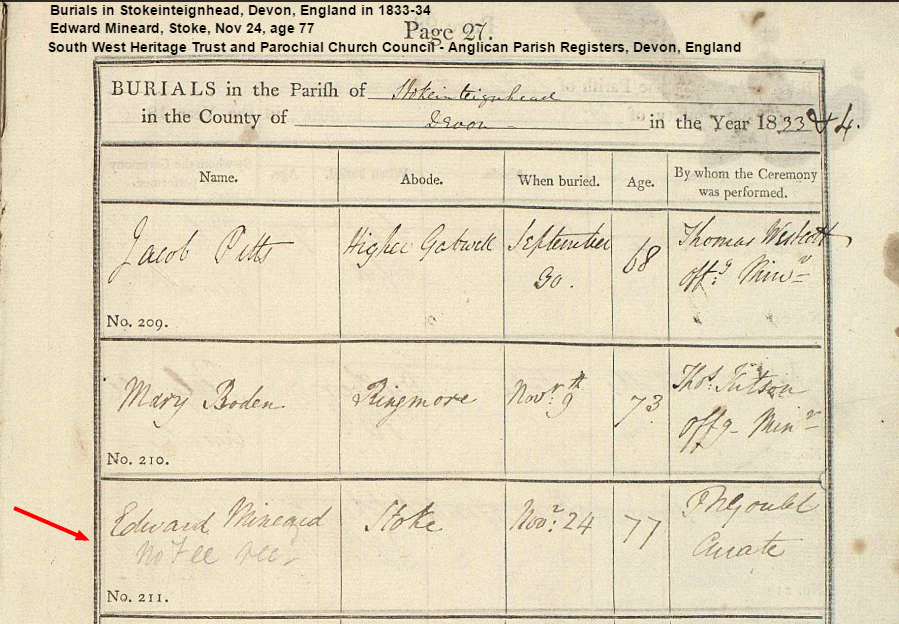 Burials in Stokeinteignhead, Devon, England in 1833-34
Edward Mineard, Stoke, Nov 24, age 77
South West Heritage Trust and Parochial Church Council - Anglican Parish Registers, Devon, England
Page 27.
BURIALS in the Pariſh of Stokeinteignhead
in the County of Devon in the Year 1833 & 4.
Name. Abode. When buried. Age. By whom the Ceremony was performed.
Jacob Pitts Higher Gabwell September 30. 68 Thomas Westcott Offg. Minr
No. 209.
Mary Boden Ringmore Novr. 9th 73 Thos. Offg Minr
No. 210.
Edward Mineard Stoke Novr. 24 77 Gould Curate
No Fee rec
No. 211.